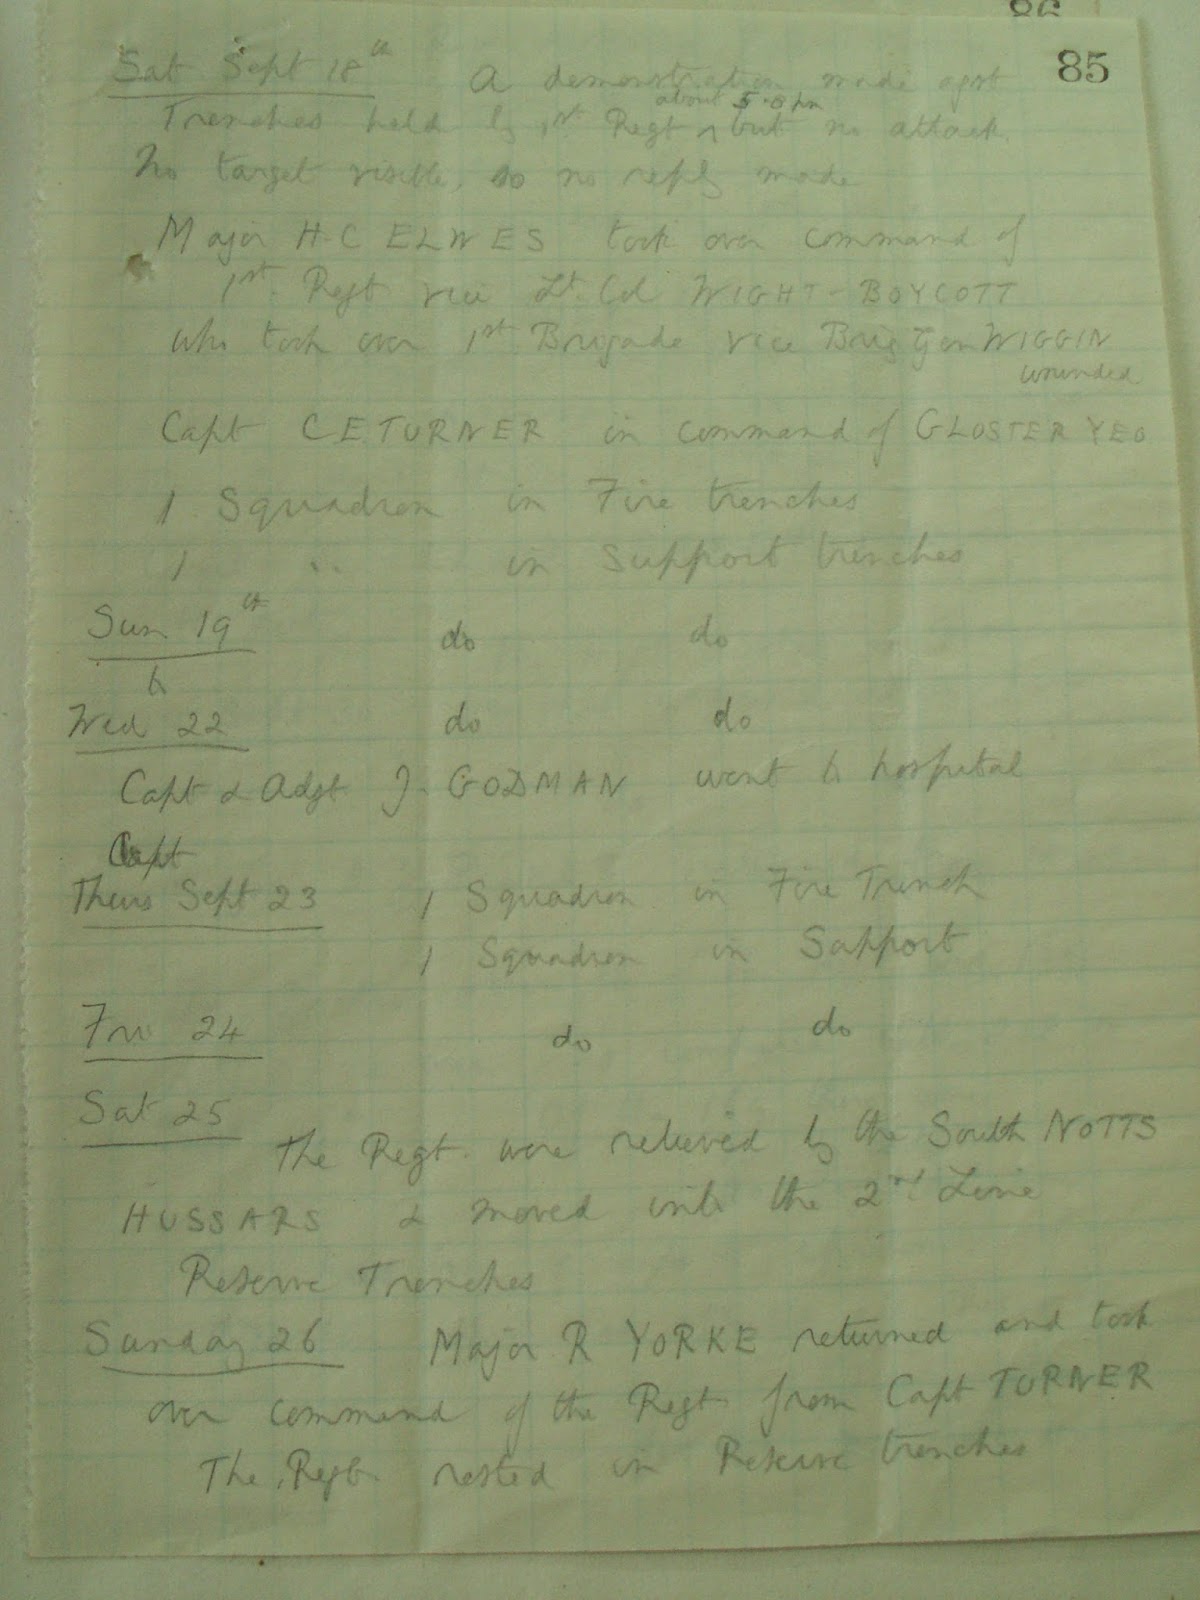 86
85
Sat Sept 18th A demonstration made agst
about 5.0 pm
Trenches held by 1st Regt ^ but no attack.
No target visible, so no reply made
Major H.C ELWES took over command of
1st Regt vice Lt. Col WIGHT-BOYCOTT
who took over 1st Brigade vice Brig Gen WIGGIN
wounded
Capt C E TURNER in command of GLOSTER YEO
1 Squadron in Fire trenches
1 " in Support trenches
Sun 19th do do
to
Wed 22 do do
Capt & Adgt J. GODMAN went to hospital
Capt
Thurs Sept 23 1 Squadron in Fire Trench
1 Squadron in Support
Fri 24 do do
Sat 25
The Regt. were relieved by the South NOTTS
HUSSARS & moved into the 2nd Line
Reserve Trenches
Sunday 26 Major R YORKE returned and took
over command of the Regt from Capt TURNER
The Regt. rested in Reserve trenches